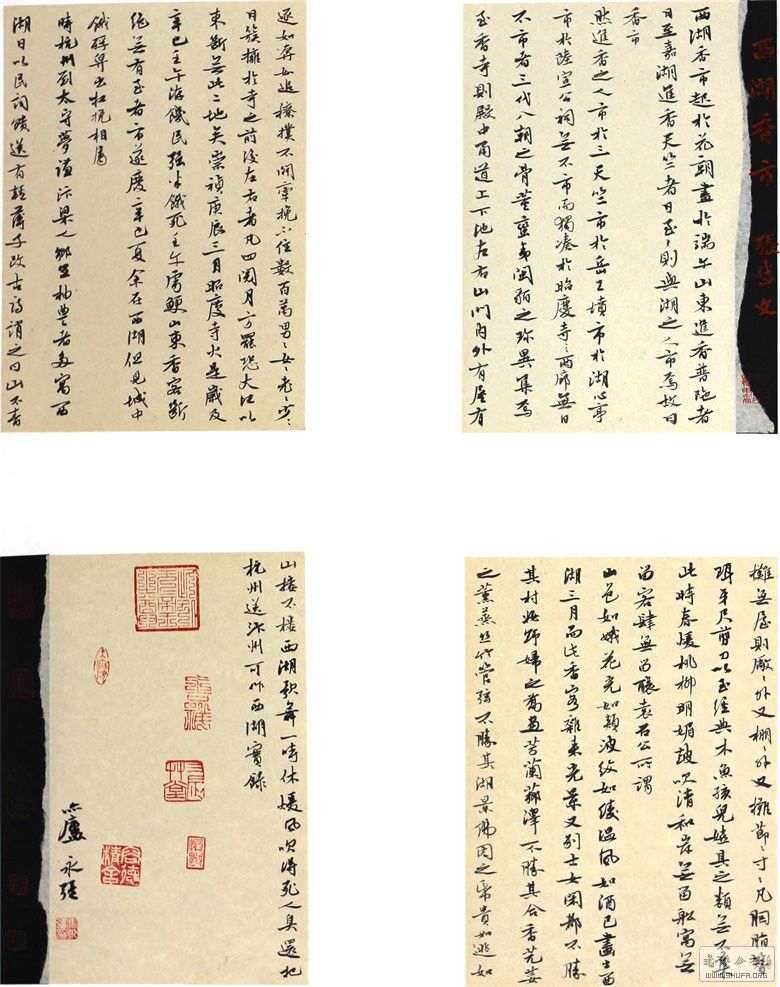 西湖香市 張岱文
西湖香市起於花朝盡於端午山東進香普陀者
日至嘉湖進香天竺者日至〻則與湖之人市焉故曰
香市
然進香之人市於三天竺市於岳王墳市於湖心亭
市於陸宣公祠無不市而獨湊於昭慶寺〻兩廊無日
不市者三代八朝之骨董蠻夷閩貊之珍異集焉
至香寺則殿中甬道上下池左右山門內外有屋有
攤無屋則廠〻外又棚〻外又攤節〻寸〻凡胭脂簪
珥牙尺剪刀以至經典木魚孩兒嬉具之類無不集
此時春暖桃柳明媚鼓吹清和岸無留船寓無
留客肆無留釀袁石公所謂
山色如娥花光如頰波紋如綾溫風如酒已畫出西
湖三月而此香客雜來光景又別士女閑都不勝
其村妝野婦之喬畫芳蘭薌澤不勝其合香芫荽
之薰蒸絲竹管弦不勝其湖景佛圖之紙貴如逃如
逐如奔如追撩撲不開牽挽不住數百萬男〻女〻老〻少〻
日簇擁於寺之前後左右者凡四閱月方罷恐大江以
東斷無此二地矣崇禎庚辰三月昭慶寺火是歲及
辛巳壬午洊饑民強半餓死壬午虜鯁山東香客斷
絕無有至者市遂廢辛巳夏余在西湖但見城中
餓殍舁出扛挽相屬
時杭州劉太守夢謙汴梁人鄉里抽豐者多寓西
湖日以民詞饋送有輕薄子改古詩誚之曰山不青
山樓不樓西湖歌舞一時休暖風吹得死人臭還把
杭州送汴州可作西湖實錄
廬 永強
WWW.SHUFA.ORG